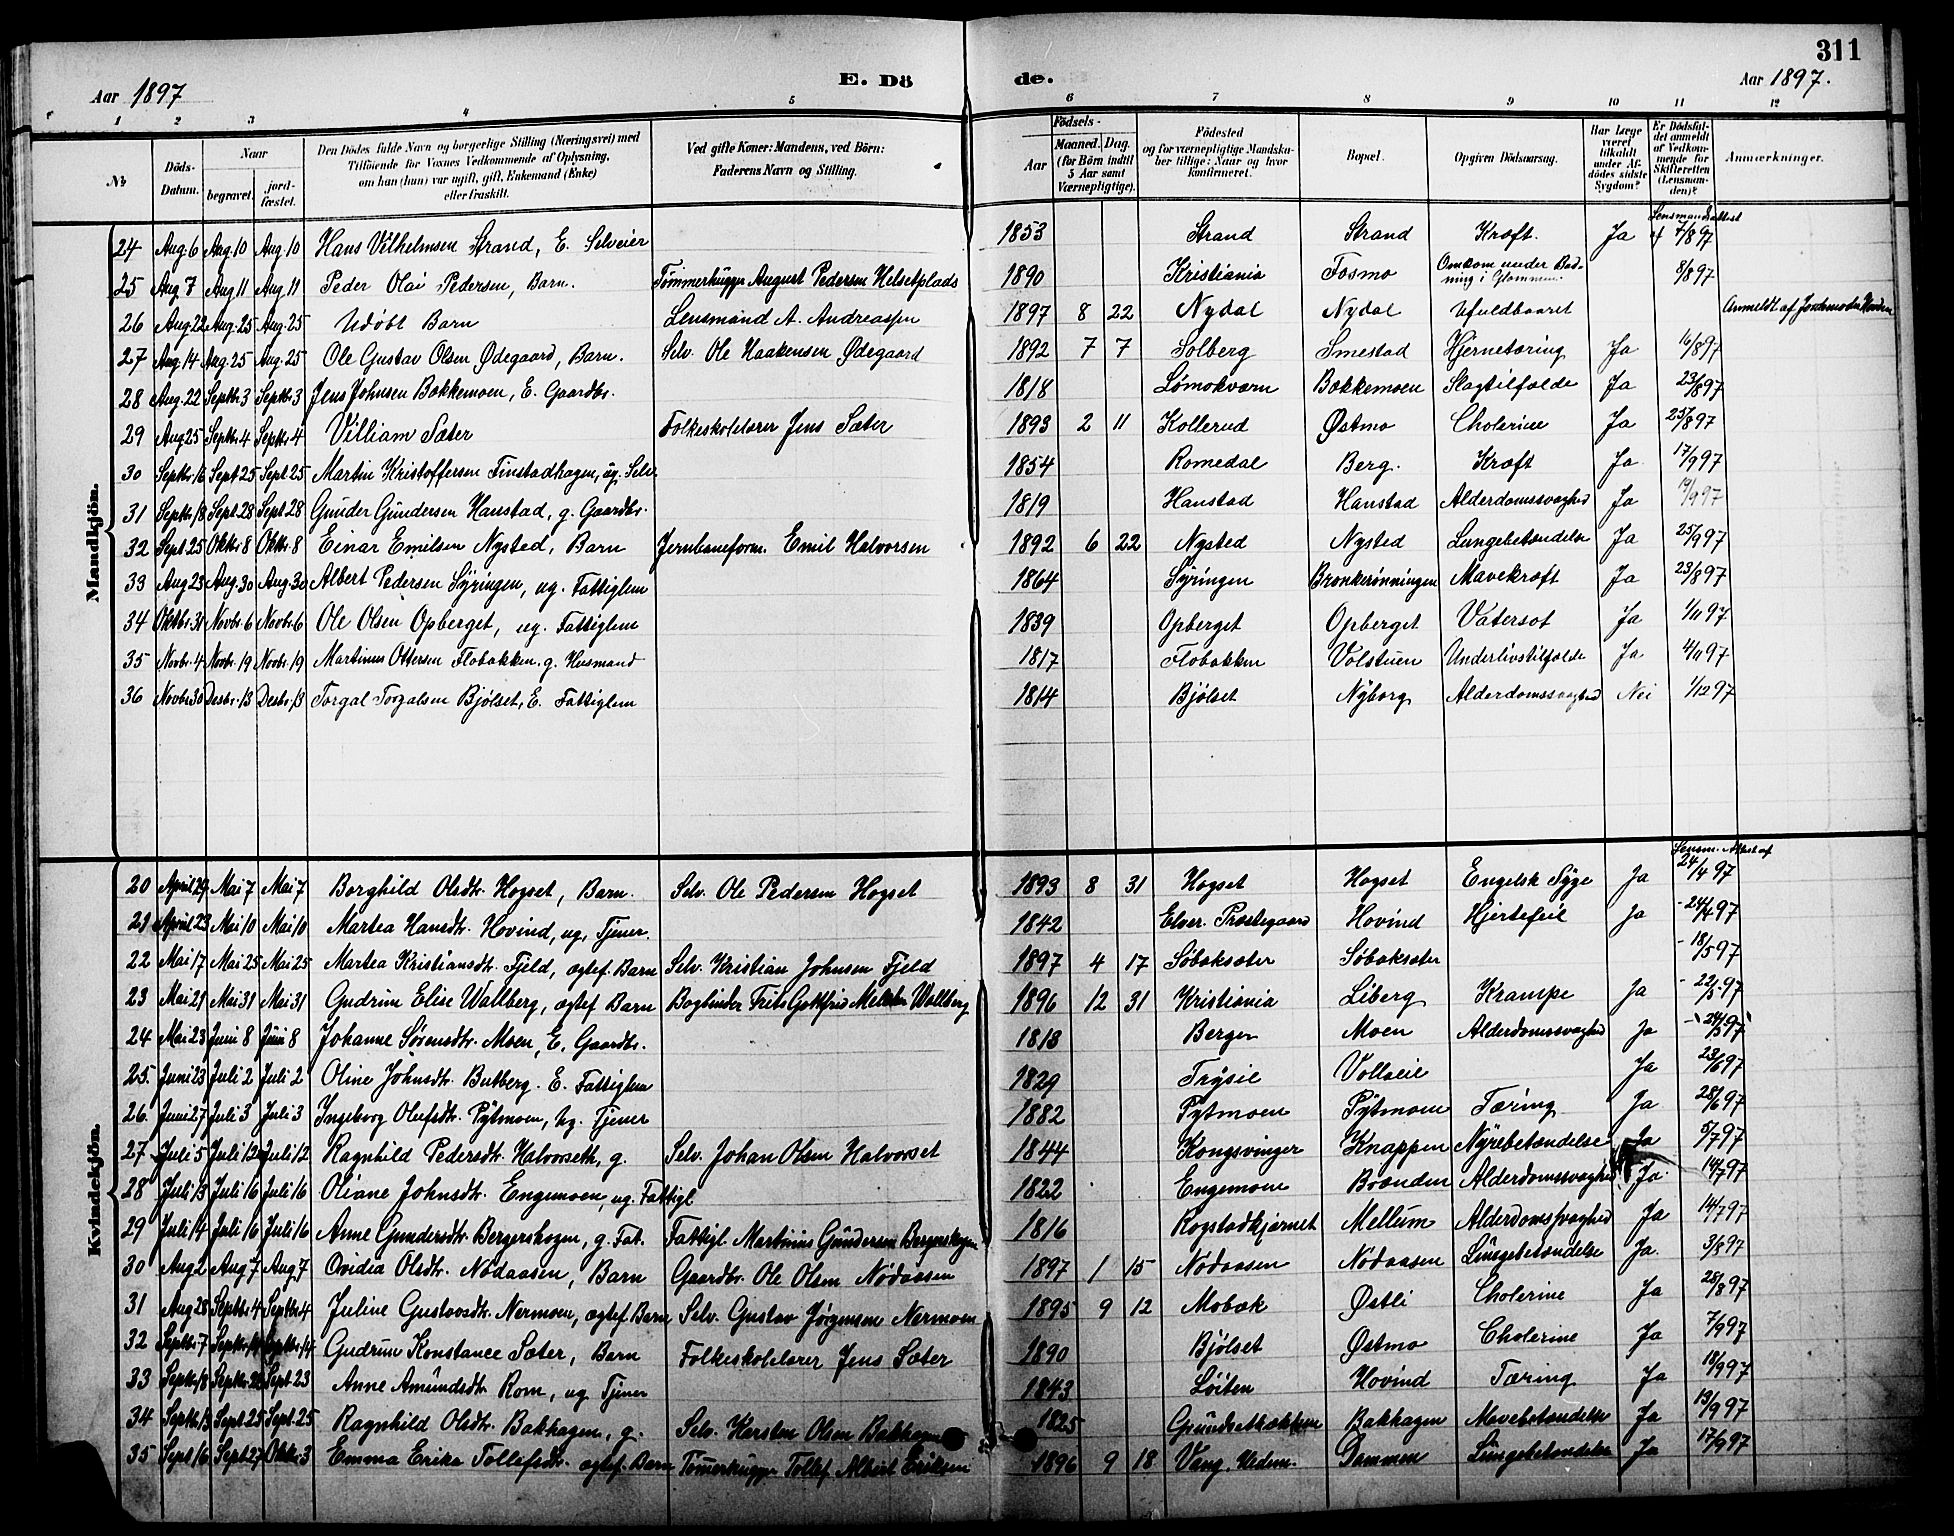 311
Aar 1897 E. Dö de. Aar 1897.
1 2 3 4 5 6 7 8 9 10 11 12
№ Döds-Datum. Naar begravet. jordfæstet. Den Dödes fulde Navn og borgerlige Stilling (Næringsvei) med Tilföiende for Voxnes Vedkommende af Oplysning, om han (hun) var ugift, gift, Enkemand (Enke) eller fraskilt. Ved gifte Koner: Mandens, ved Börn: Faderens Navn og Stilling. Födsels- Aar Maaned. Dag. (for Börn indtil 5 Aar samt Værnepligtige). Födested og for værnepligtige Mandskaber tillige: Naar og hvor konfirmeret. Bopæl. Opgiven Dödsaarsag. Har Læge været tilkaldt under Afdödes sidste Sygdom? Er Dödsfaldet anmeldt af Vedkommende for Skifteretten (Lensmanden)? Anmærkninger.
Mandkjön.
24 Aug. 6 Aug. 10 Aug. 10 Hans Vilhelmsen Strand, E. Selveier 1853 Strand Strand Kræft. Ja Lensmandsattest af 7/8 97
25 Aug. 7 Aug 11 Aug. 11 Peder Olai Pedersen, Barn. Tømmerhugger August Pedersen Helsetplads 1890 Kristiania Fosmo Omkom under Badning i Glommen 8/8 97
26 Aug. 22 Aug. 25 Aug. 25 Udøbt Barn Lensmand A. Andreassen 1897 8 22 Nydal Nydal Ufuldbaaret Anmeldt af Jordmoder
27 Aug. 14 Aug. 25 Aug. 25 Ole Gustav Olsen Ødegaard, Barn. Selv. Ole Haakensen Ødegaard 1892 7 7 Solberg Smestad Hjernetæring Ja 16/8 97
28 Aug. 22 Septbr. 3 Septbr. 3 Jens Johnsen Bakkemoen, E. Gaardbr. 1818 Lømokværn Bakkemoen Slagtilfælde Ja 23/8 97
29 Aug 25 Septbr. 4 Septbr. 4 Villiam Sæter Folkeskolelærer Jens Sæter 1893 2 11 Kollerud Østmo Cholerine Ja 25/8 97
30 Septbr. 16 Sept 25 Sept. 25 Martin Kristoffersen Finstadhagen, ug. Selv. 1854 Romedal Berg. Kræft Ja 17/9 97
31 Septbr. 18 Sept. 28 Sept 28 Gunder Gundersen Hanstad, g. Gaardbr. 1819 Hanstad Hanstad Alderdomssvaghed Ja 19/9 97
32 Sept 25 Oktbr. 8 Oktbr. 8 Einar Emilsen Nysted, Barn Jernbaneform. Emil Halvorsen 1892 6 22 Nysted Nysted Lungebetændelse Ja 25/9 97
33 Aug 23 Aug. 30 Aug. 30 Albert Pedersen Syringen, ug. Fattiglem 1864 Syringen Bronkerønningen Mavekræft Ja 23/8 97
34 Oktbr. 31 Novbr. 6 Novbr. 6 Ole Olsen Opberget, ug. Fattiglem 1839 Opberget Opberget Vatersot Ja 1/11 97
35 Novbr. 4 Novbr. 19 Novbr. 19 Martinus Ottersen Flobakken. g. Husmand 1817 Flobakken Volstuen Underlivstilfælde Ja 4/11 97
36 Novbr. 30 Desbr. 13 Desbr. 13 Torgal Torgalsen Bjølset, E. Fattiglem 1814 Bjølset Nyborg Alderdomssvaghed Nei 1/12 97
Kvindekjön.
20 April 24 Mai 7 Mai 7 Borghild Olsdtr. Hogset, Barn. Selv. Ole Pedersen Hogset 1893 8 31 Hogset Hogset Engelsk Syge Ja Lensm. Attest af 24/4 97
21 April 23 Mai 10 Mai 10 Martea Hansdtr. Hovind, ug. Tjener. 1842 Elver. Præstegaard Hovind Hjertefeil Ja - 24/4 97
22 Mai 17 Mai 25 Mai 25 Martea Kristiansdtr. Fjeld, ægtef. Barn Selv. Kristian Johnsen Fjeld 1897 4 17 Søbaksæter Søbaksæter - 18/5 97
23 Mai 21 Mai 31 Mai 31 Gudrun Elise Wallberg, ægtef Barn Bogbinder Frits Gottfred Wallberg 1896 12 31 Kristiania Liberg Krampe Ja - 22/5 97
24 Mai 23 Juni 8 Juni 8 Johanne Sørensdtr. Moen, E. Gaardbr. 1813 Berger Moen Alderdomssvaghed Ja - 24/5 97
25. Juni 23 Juli 2 Juli 2 Oline Johnsdtr. Butberg. E. Fattiglem 1829 Trysil Volleie Ja 23/6 97
26. Juni 27 Juli 3 Juli 3 Ingeborg Olufsdtr. Pytmoen, ug. Tjener 1882 Pytmoen Pytmoen Tæring Ja 28/6 97
27 Juli 5 Juli 12 Juli 12 Ragnhild Pedersdtr. Halvorseth, g. Selv. Johan Olsen Halvorset 1844 Kongsvinger Knappen Nyrebetændelse Ja 5/7 97
28 Juli 13 Juli 16 Juli 16 Oliane Johnsdtr. Engemoen, ug. Fattigl 1822 Engemoen Brænden Alderdomssvaghed Ja. 14/7 97
29 Juli 14 Juli 16 Juli 16 Anne Gundersdtr. Bergershagen, g. Fat. Fattigl. Martinius Gundersen Bergershagen 1816 Rogstadkjærnet Mellum Alderdomssvaghed Ja 14/7 97
30 Aug 2 Aug. 7 Aug. 7 Ovidia Olsdtr. Nødaasen, Barn Gaardbr. Ole Olsen Nødaasen 1897 1 15 Nødaasen Nødaasen Lungebetændelse Ja. 3/8 97
31 Aug 28 Septbr. 4 Septbr. 4 Juline Gustavsdtr. Nermoen, ægtef. Barn Selv. Gustav Jørgensen Nermoen 1895 9 12 Mobæk Østli Cholerine Ja 28/8 97
32 Septbr. 7 Septbr. 14 Septbr. 14 Gudrun Konstance Sæter, Barn Folkeskolelærer Jens Sæter 1890 Bjølset Østmo Cholerine Ja 7/9 97
33 Septbr. 18 Septbr. 23 Sept. 23 Anne Amundsdtr. Rom, ug. Tjener 1843 Løiten Hovind Tæring Ja 18/9 97
34 Septbr. 13 Sept. 25 Sept. 25 Ragnhild Olsdtr. Bakhagen, g. Selv. Karsten Olsen Bakhagen 1825 Grundsetbakken Bakhagen Mavebetændelse Ja 13/9 97
35 Sept. 16 Sept. 27 Oktbr. 3 Emma Erika Tollefsdtr. ægtef. Barn Tømmerhugger Tollef Albert Eriksen 1896 9 18 Vang. Hedem. Dammen Lungebetændelse Ja 17/9 97